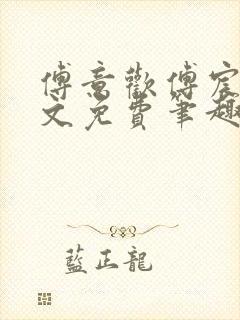 傅意歡傅宸
文免費筆趣
藍正龍